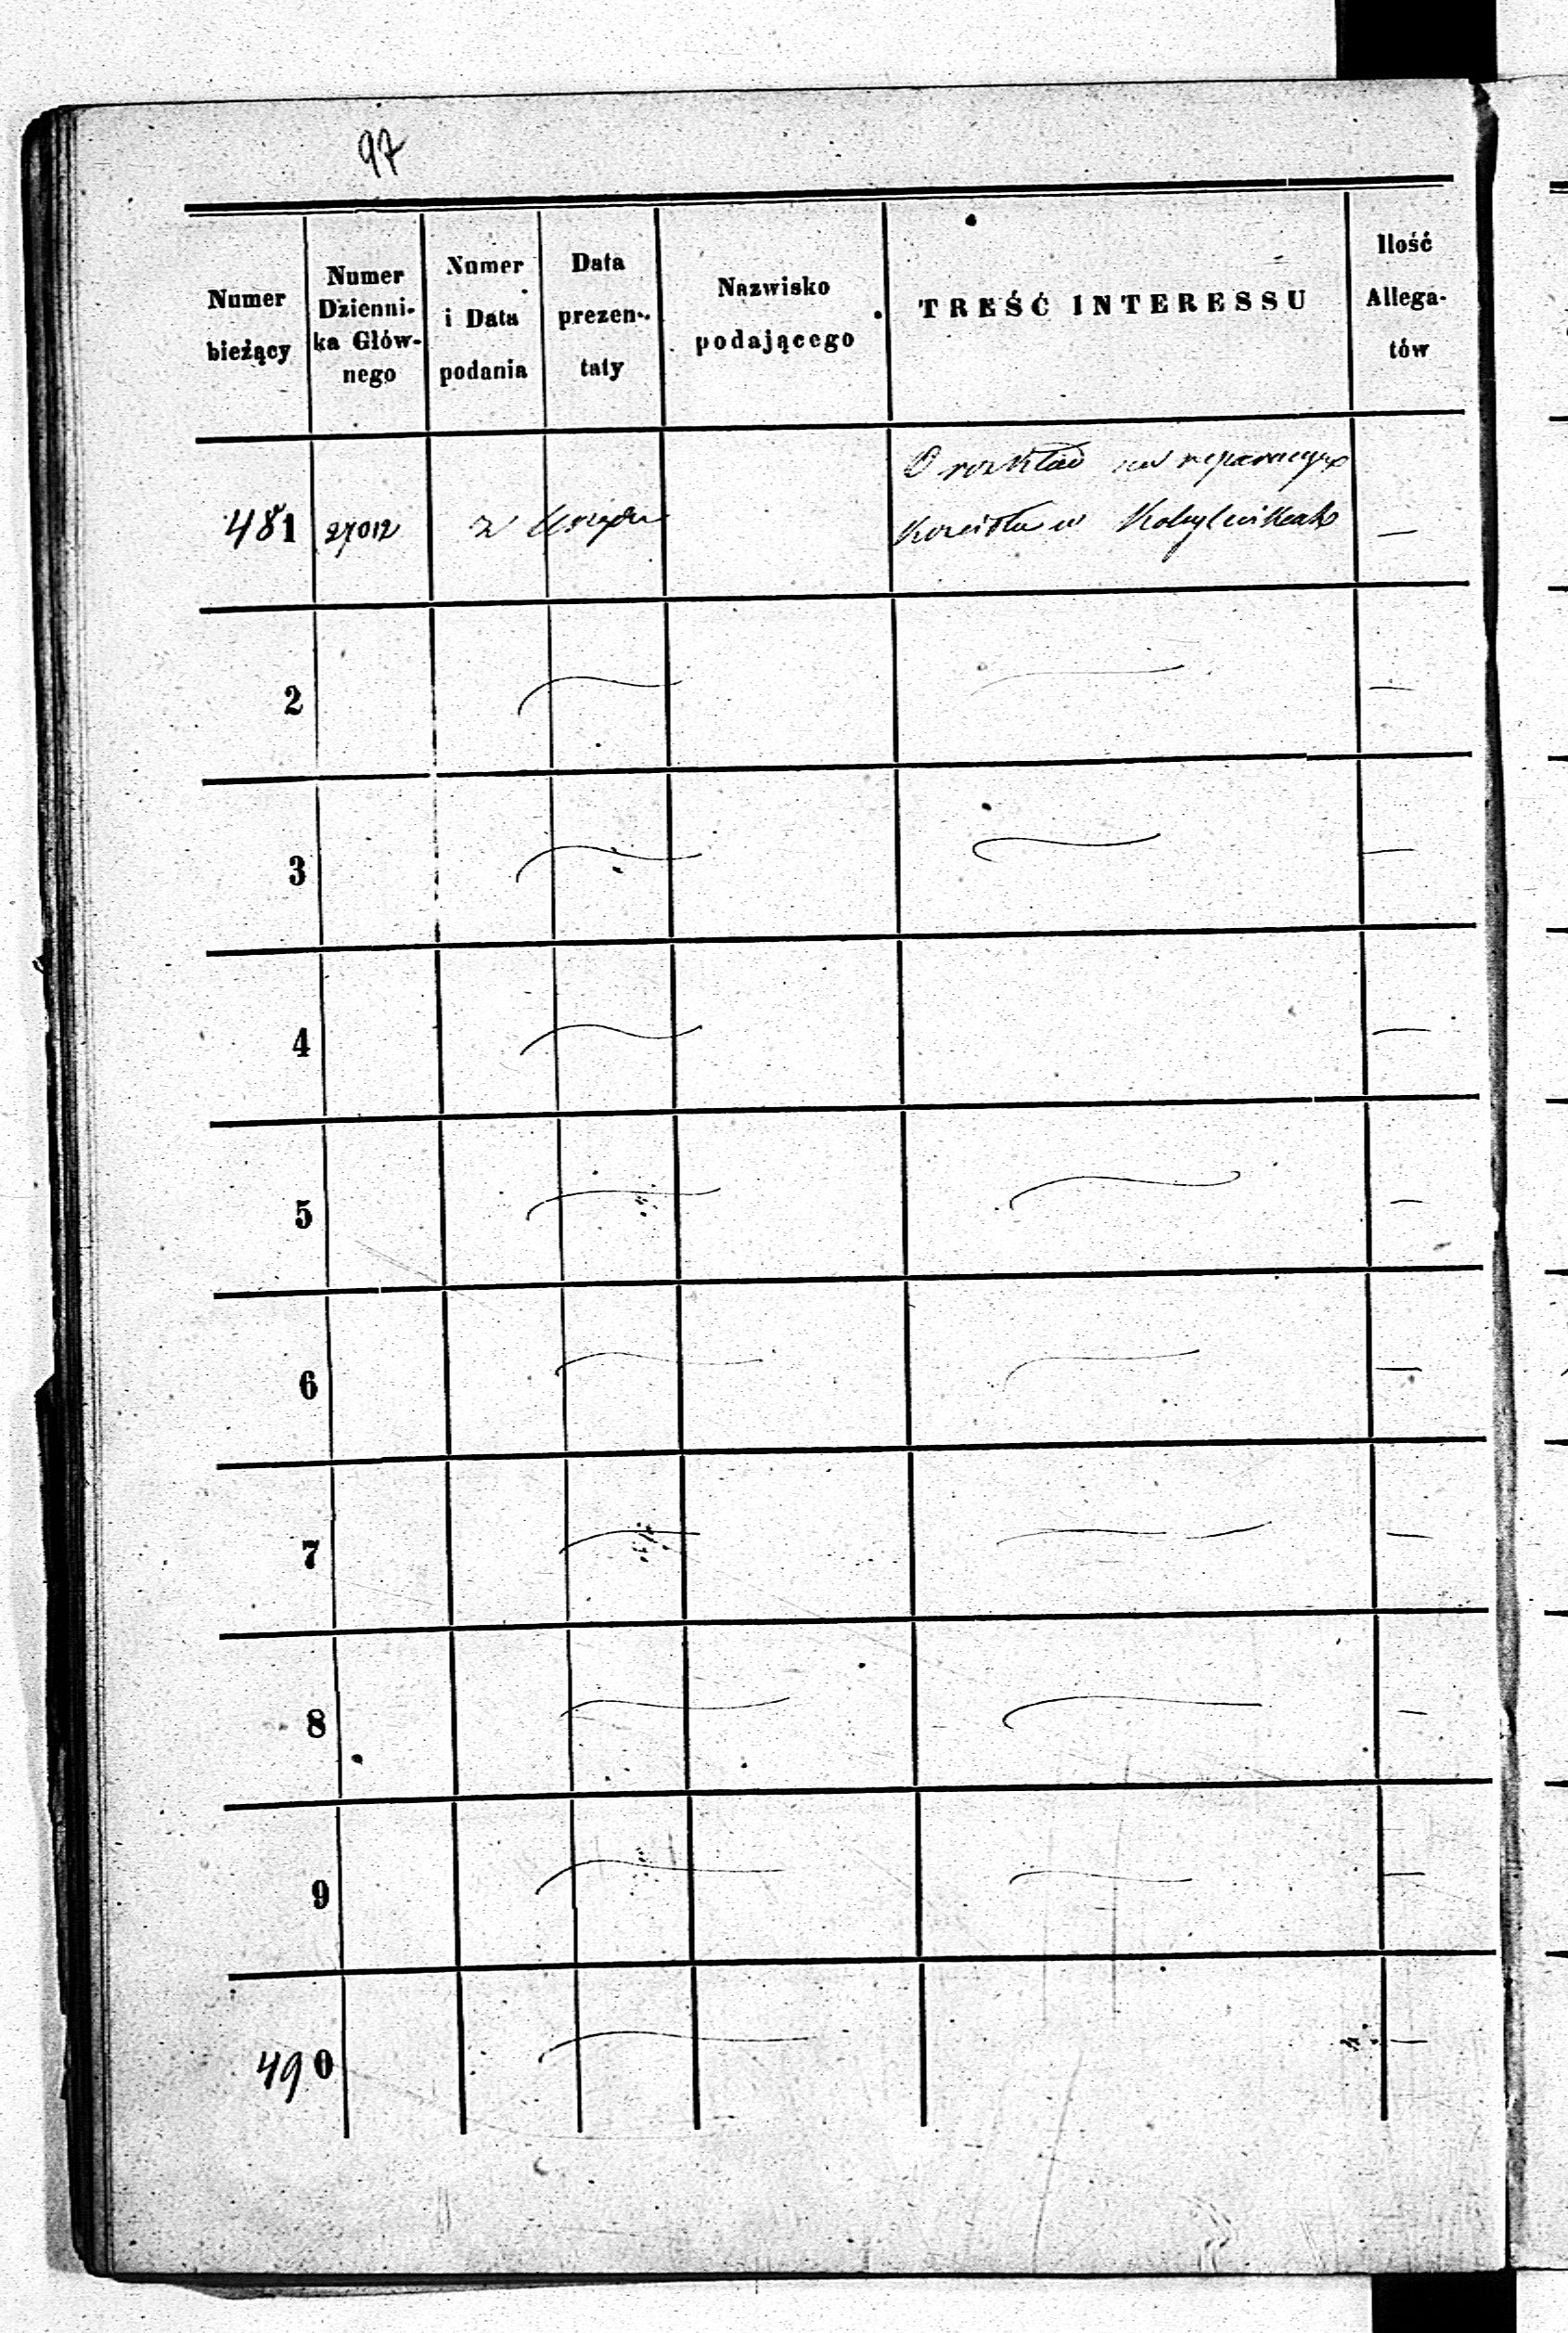 97
Numer
bieżący
Numer
Dzienni-
ka Głów-
nego
Numer
i Data
podania
Data
prezen-
taty
Nazwisko
podającego
TREŚĆ INTERESSU
Ilość
Allega-
tów
481 27012 z Urzędu O rozkład na reparacyę
Kościoła w Kobylnikach —
2 —
3 —
4 —
5 —
6 —
7 —
8 —
9 —
490 —